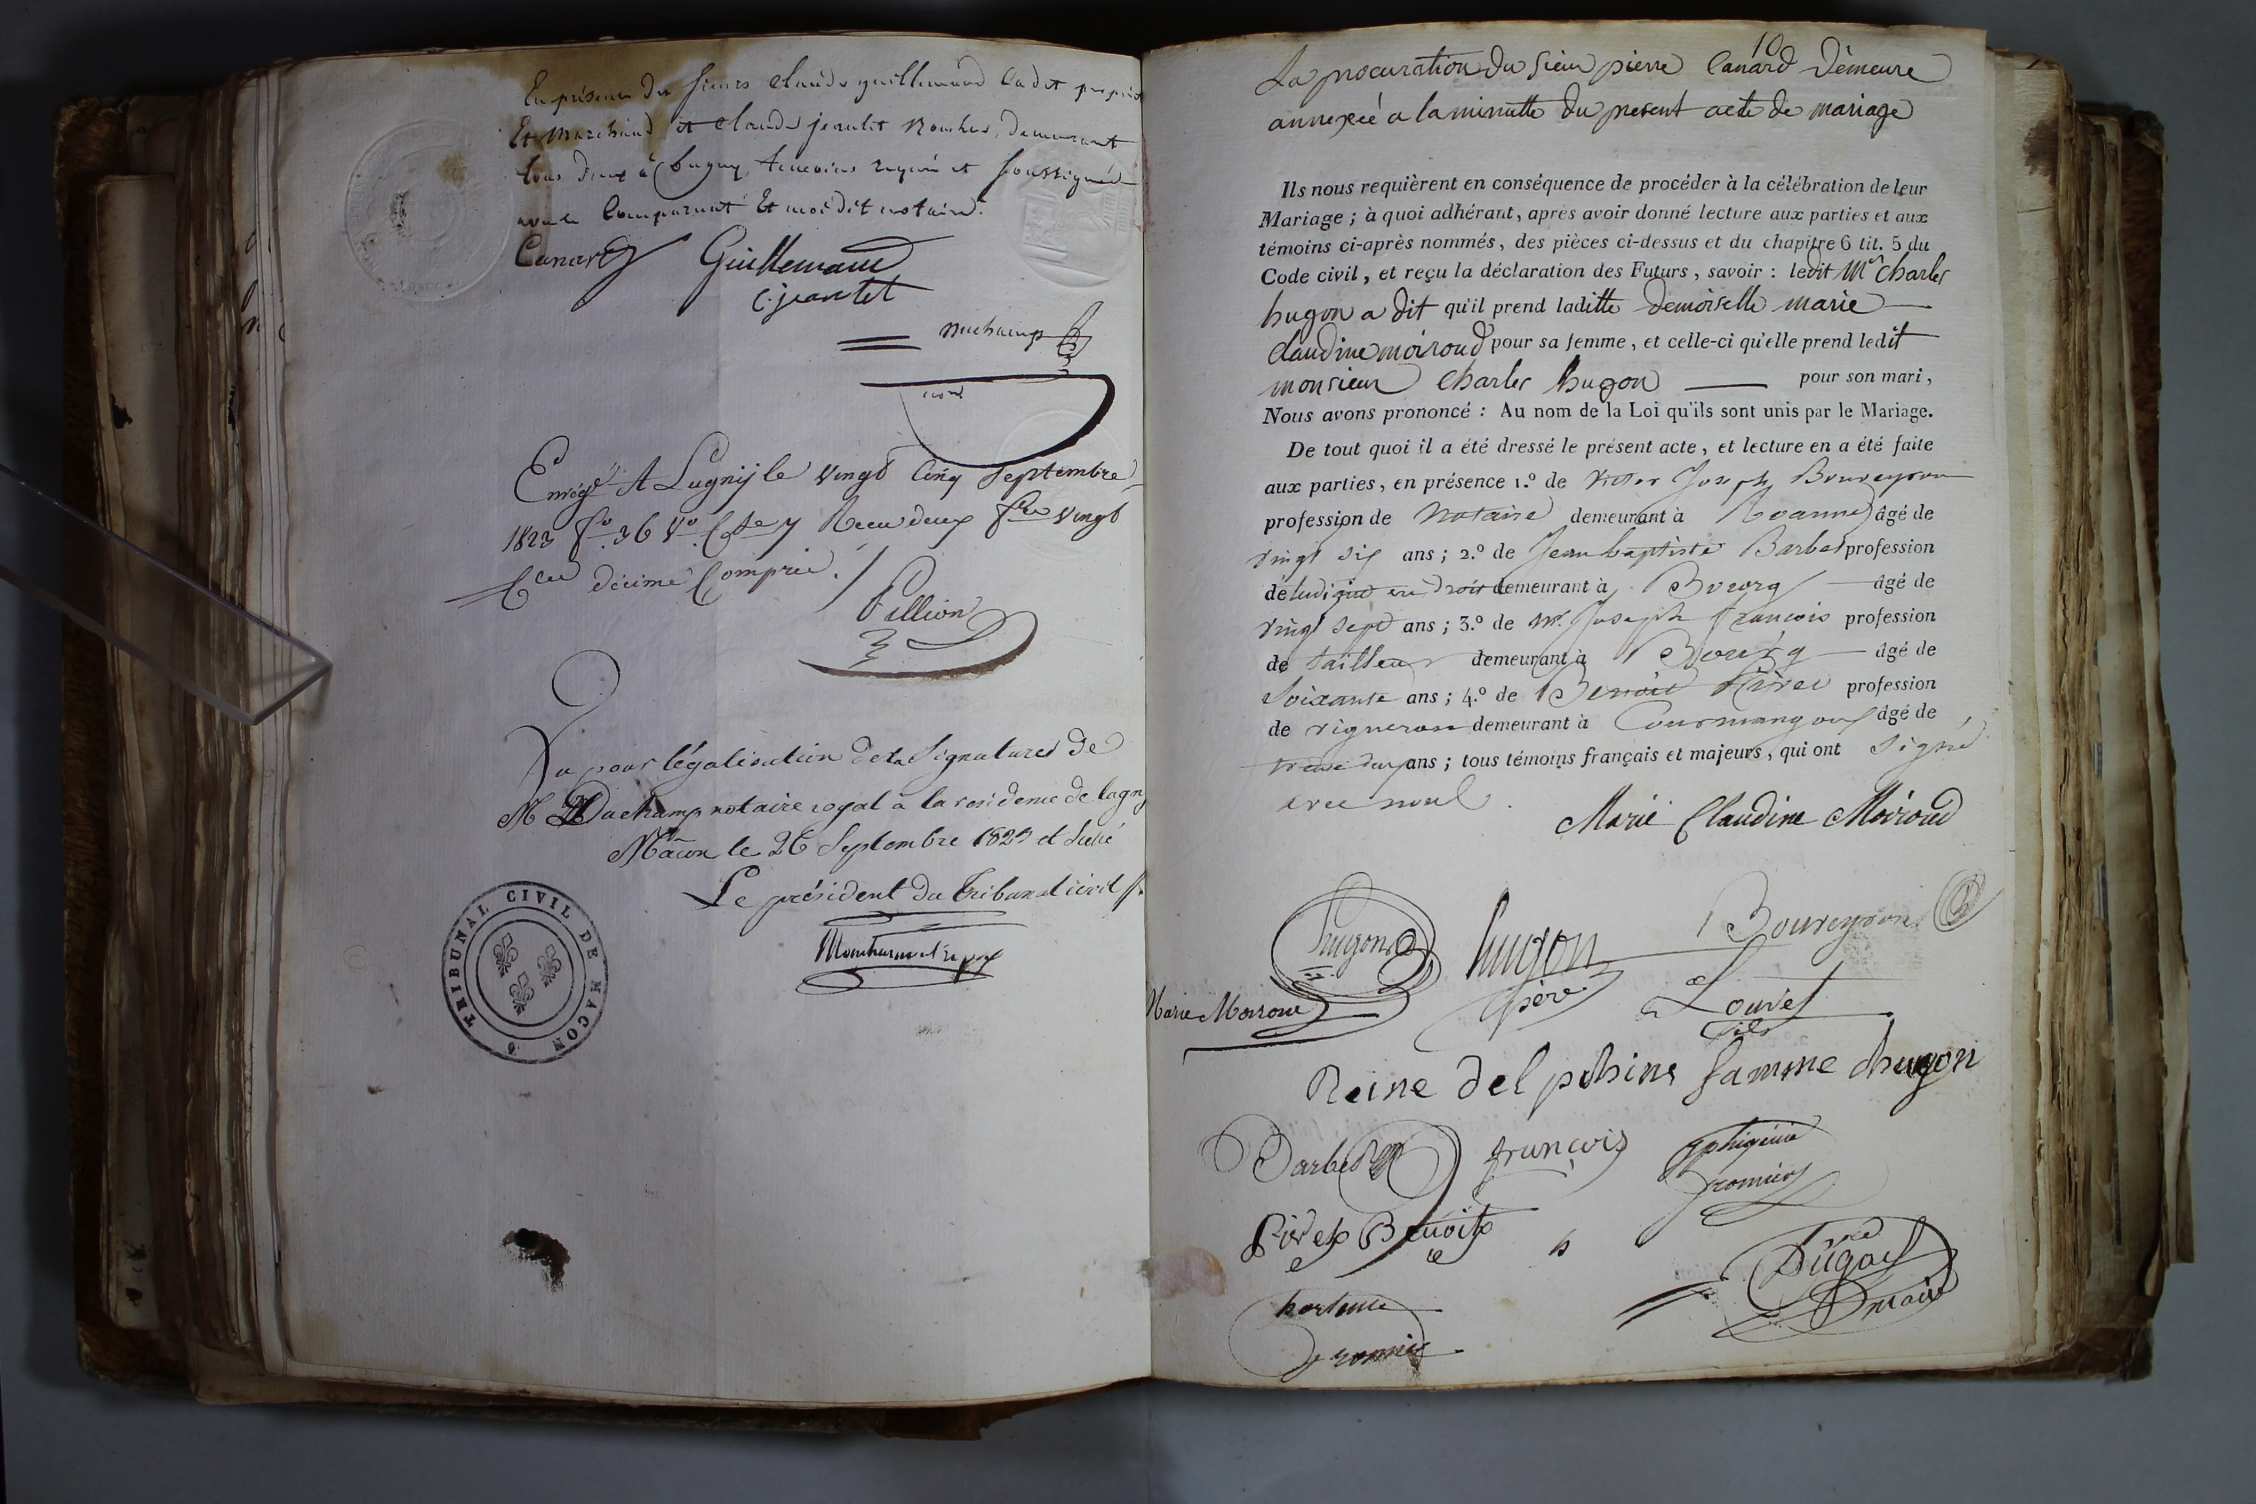 En présence des sieurs claude guillemaud Cadet
Et marchand et claude jeantet demeurant
tous deux à Lugny, témoins requis et soussignés
avec le Comparant Et moi dit notaire.
Canard Guillemaud
C. jeantet
Duchamp
not
Enregé A Lugny le vingt cinq Septembre
1823 fo. 36 Vo. Cse 7 Reçu deux fcs vingt
Ces décime Compris.
Pellion
Vu pour légalisation de la Signature de
M Duchamp notaire royal à la résidence de lugny
Mâcon le 26 Septembre 1823
Le président du Tribunal civil
TRIBUNAL CIVIL DE MACON
10
La procuration du sieur pierre Canard Demeure
annexéé a la minutte du present acte de mariage
Ils nous requièrent en conséquence de procéder à la célébration de leur
Mariage ; à quoi adhérant, après avoir donné lecture aux parties et aux
témoins ci-après nommés, des pièces ci-dessus et du chapitre 6 tit. 5 du
Code civil, et reçu la déclaration des Futurs, savoir : ledit Mr charles
hugon a dit qu'il prend laditte demoiselle marie
claudine moiroud pour sa femme, et celle-ci qu'elle prend ledit
monsieur charles hugon pour son mari,
Nous avons prononcé : Au nom de la Loi qu'ils sont unis par le Mariage.
De tout quoi il a été dressé le présent acte, et lecture en a été faite
aux parties, en présence 1.º de Victor Joseph Boureyron
profession de Notaire demeurant à Roanne âgé de
vingt six ans ; 2.º de Jean baptiste Barbet profession
de demeurant à Bourg âgé de
vingt sept ans ; 3.º de Mr. Joseph françois profession
de tailleur demeurant à Bourg âgé de
soixante ans ; 4.º de Benoit profession
de vigneron demeurant à Courmangoux âgé de
trente deux ans ; tous témoins français et majeurs, qui ont signé
avec nous.
Marie Claudine Moiroud
hugon hugon Boureyron
père
Marie Moiroud Louvet
fils
Reine delphine famme hugon
Barbet françois
Benoit
Dugas
maire
hortense